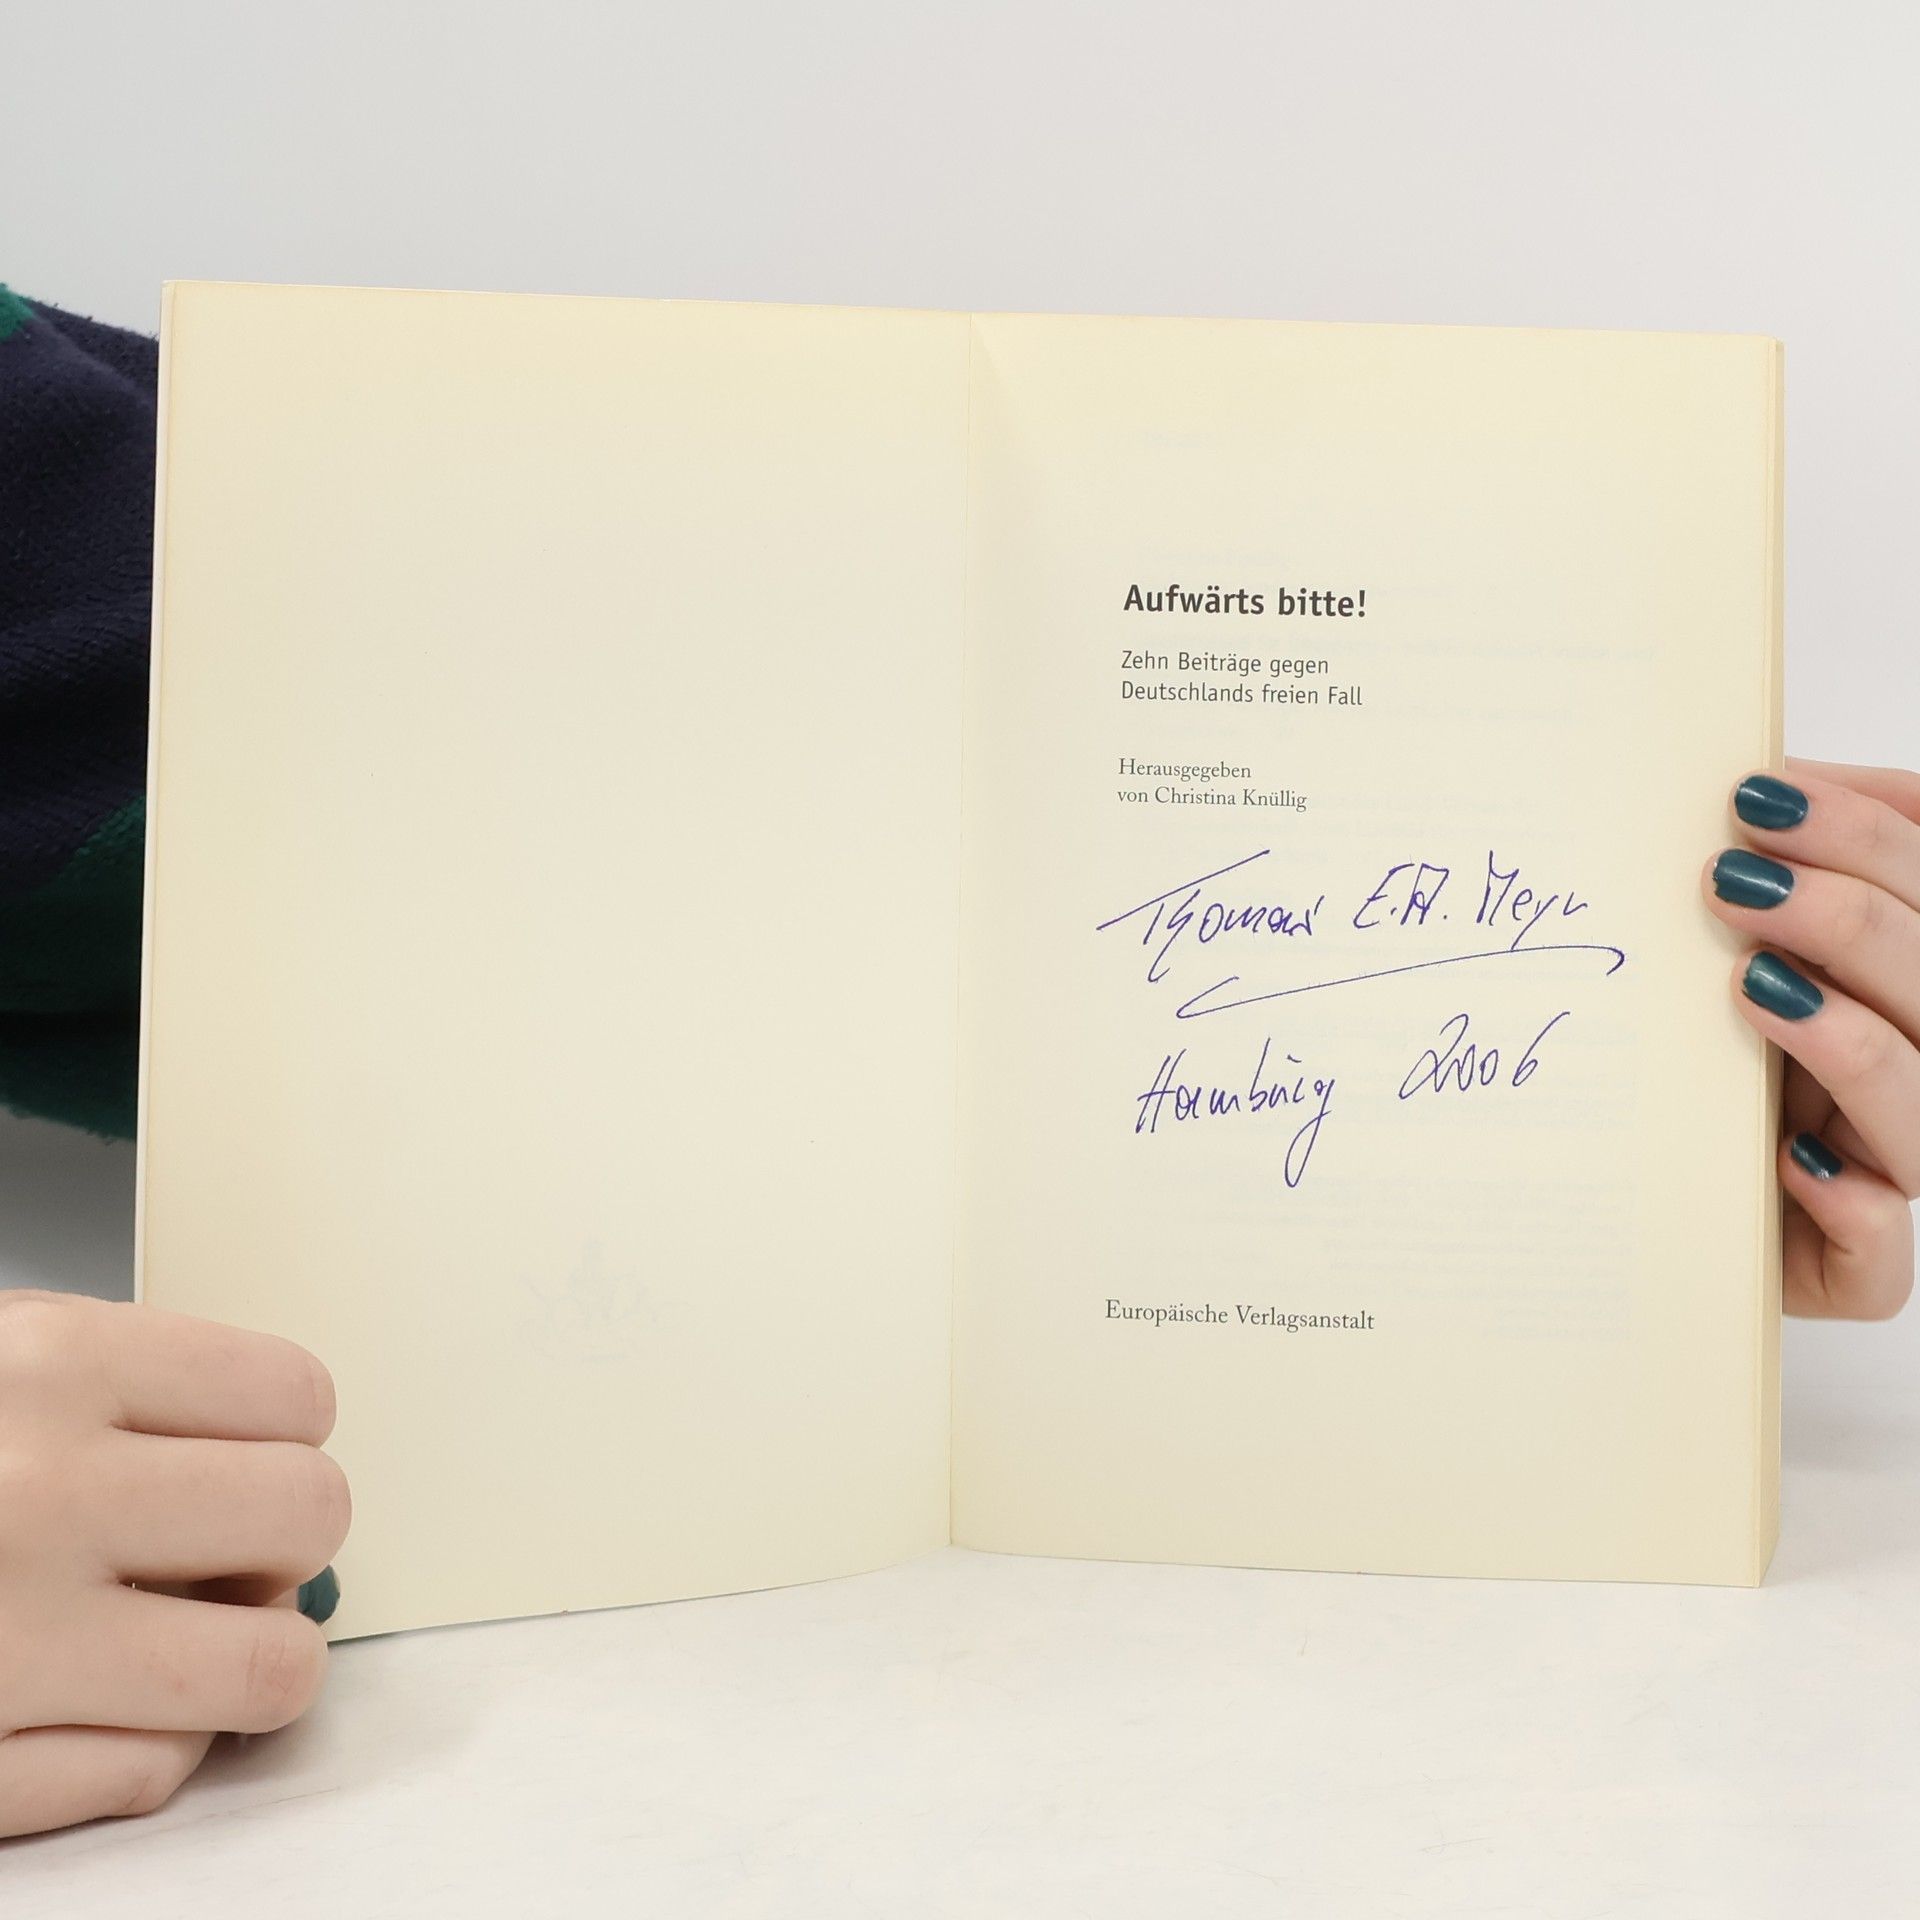 Aufwärts bitte!
Zehn Beiträge gegen
Deutschlands freien Fall
Herausgegeben
von Christina Knüllig
Thomas E.A. Meyn
Hamburg 2006
Europäische Verlagsanstalt